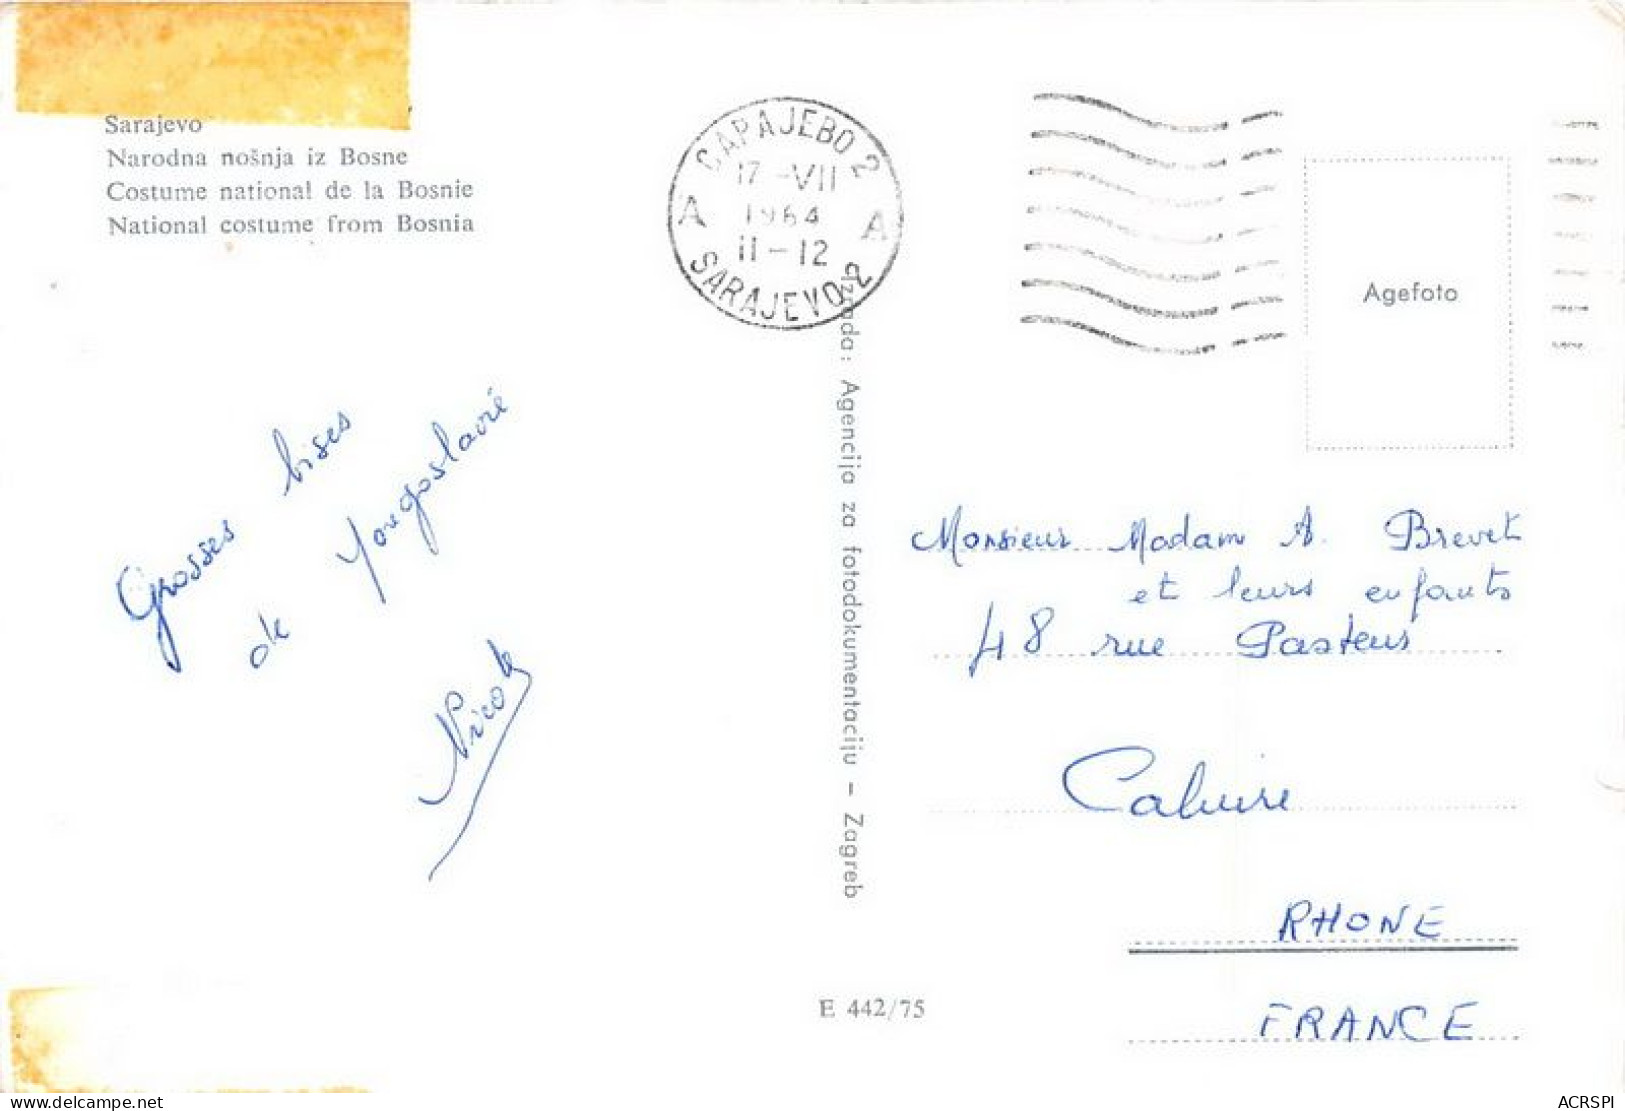 Sarajevo
Narodna nošnja iz Bosne
Costume national de la Bosnie
National costume from Bosnia
САРАЈЕВО 2
17-VII
1964
A A
11-12
SARAJEVO 2
Agefoto
Izrada: Agencija za fotodokumentaciju – Zagreb
Grosses bises
de Yougoslavie
Nicole
Monsieur Madam A. Brevet
et leurs enfants
48 rue Pasteur
Caluire
RHONE
FRANCE
E 442/75
ACRSPI